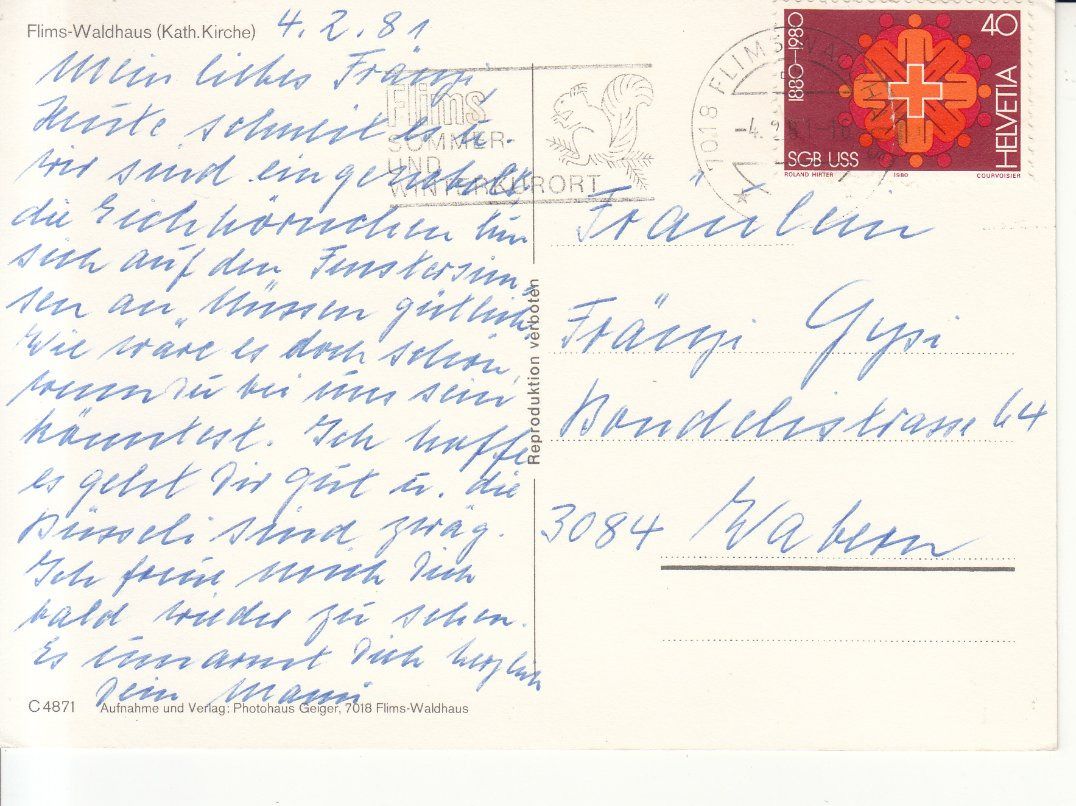 Flims-Waldhaus (Kath. Kirche) 4.2.81
Mein liebes Fränzi
Heute schneit es u.
wir sind eingeschneit
die Eichhörnchen tun
sich auf den Fenstersim-
sen an Nüssen gütlich.
Wie wäre es doch schön,
wenn Du bei uns sein
könntest. Ich hoffe
es geht Dir gut u. die
Büsseli sind zwäg.
Ich freue mich Dich
bald wieder zu sehen.
Es umarmt Dich herzlich
Dein Mami
C 4871 Aufnahme und Verlag: Photohaus Geiger, 7018 Flims-Waldhaus
Reproduktion verboten
Flims
SOMMER-
UND
WINTERKURORT
7018 FLIMS WALDHAUS
-4.2.81-10
1880-1980
40
HELVETIA
SGB USS
ROLAND HIRTER 1980 COURVOISIER
Fräulein
Fränzi Gysi
Bondelistrasse 64
3084 Wabern